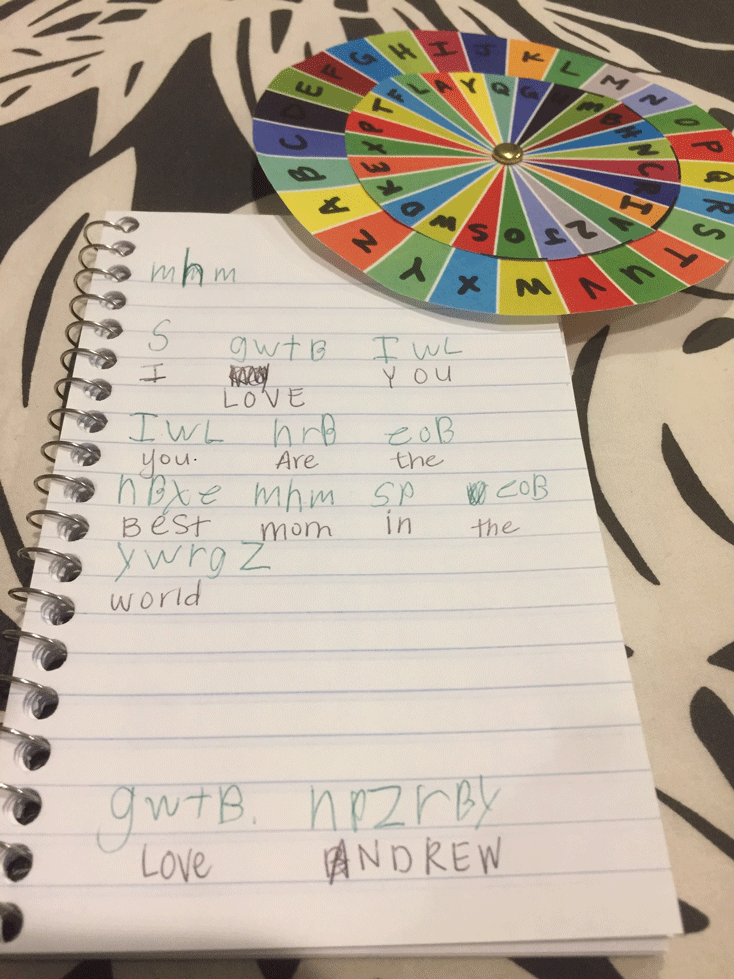 mhm
S gwtB IwL
I YOU
LOVE
IwL hrB eoB
you. Are the
hBXe mhm sp eoB
Best mom in the
ywrgZ
world
gwtB. hpZrBy
Love ANDREW
A B C D E F G H I J K L M N O P Q R S T U V W X Y Z